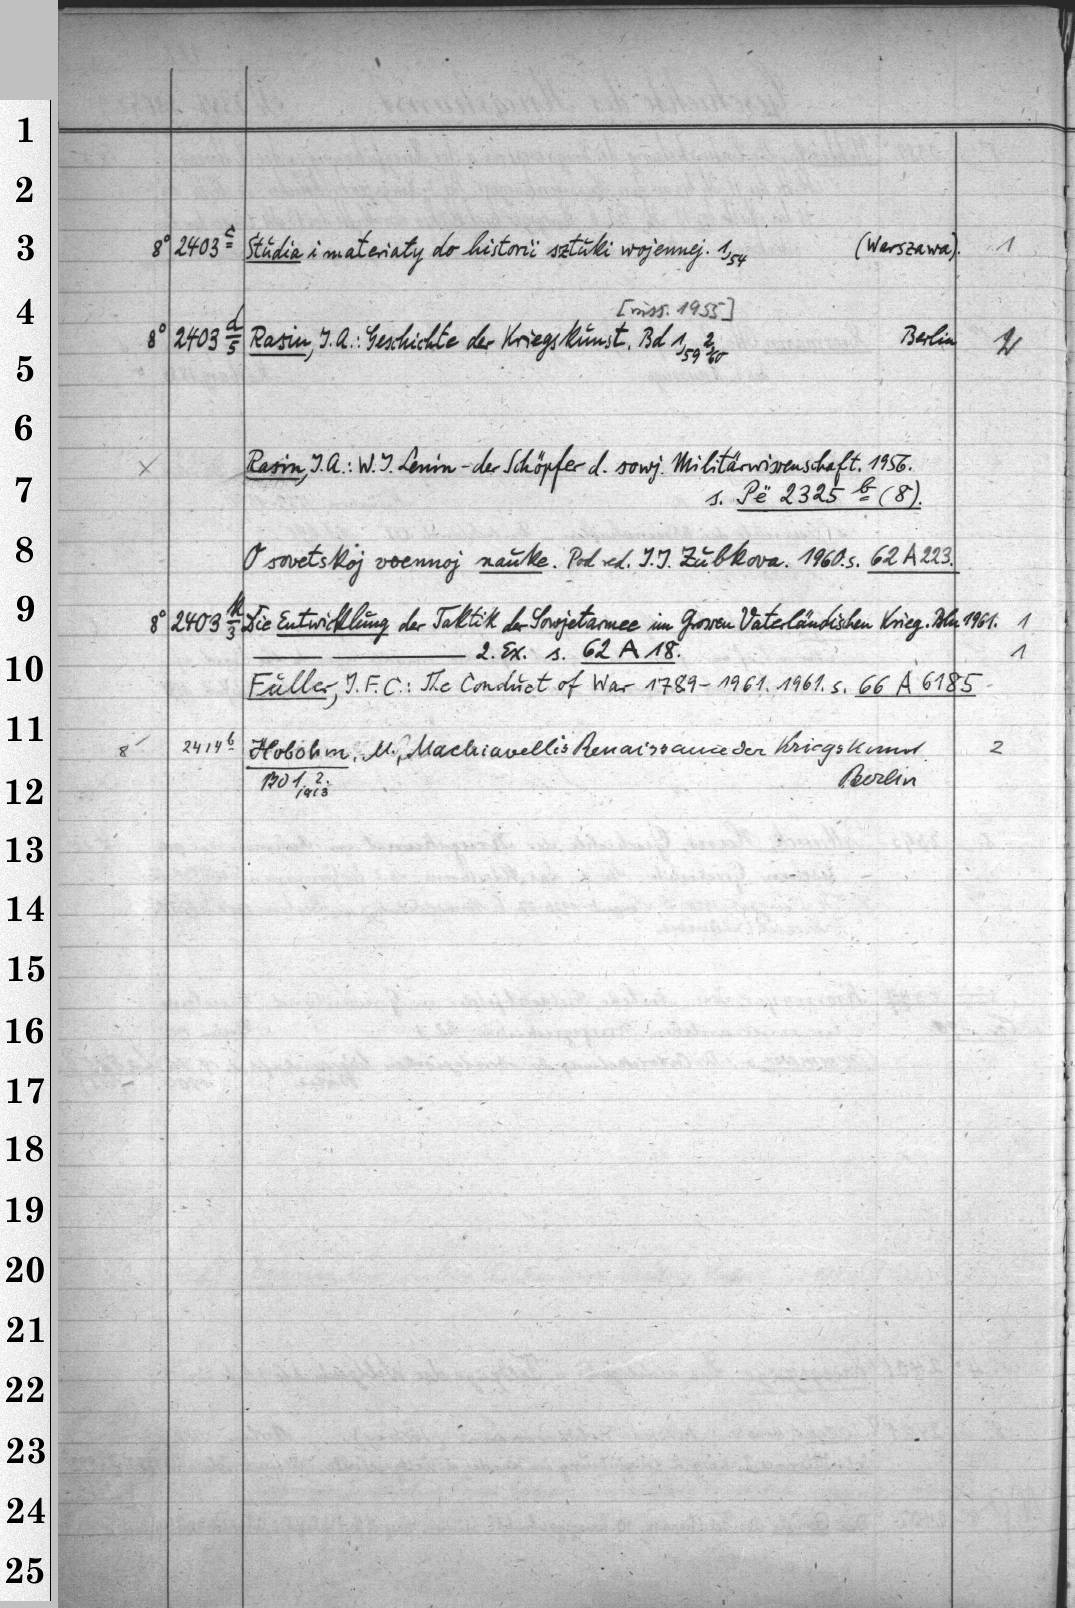 1
2
3
8° 2403 c Studia i materiały do historii sztuki wojennej. 1,54 (Warszawa). 1
4
[russ. 1955]
8° 2403 d/5 Rasin, J.A.: Geschichte der Kriegskunst. Bd 1,59 2,60 Berlin 2
5
6
× Rasin, J.A.: W.I. Lenin - der Schöpfer d. sowj. Militärwissenschaft. 1956.
7
s. Pë 2325 b (8).
8
O sovetskoj voennoj nauke. Pod red. I.I. Zubkova. 1960. s. 62 A 223.
9
8° 2403 k/3 Die Entwicklung der Taktik der Sowjetarmee im Grossen Vaterländischen Krieg. Bln 1961. 1
2. Ex. s. 62 A 18. 1
10
Fuller, J.F.C.: The Conduct of War 1789-1961. 1961. s. 66 A 6185
11
8° 2414 b Hobohm, M., Machiavellis Renaissance der Kriegskunst. 2
Bd 1. 2. 1913 Berlin
12
13
14
15
16
17
18
19
20
21
22
23
24
25